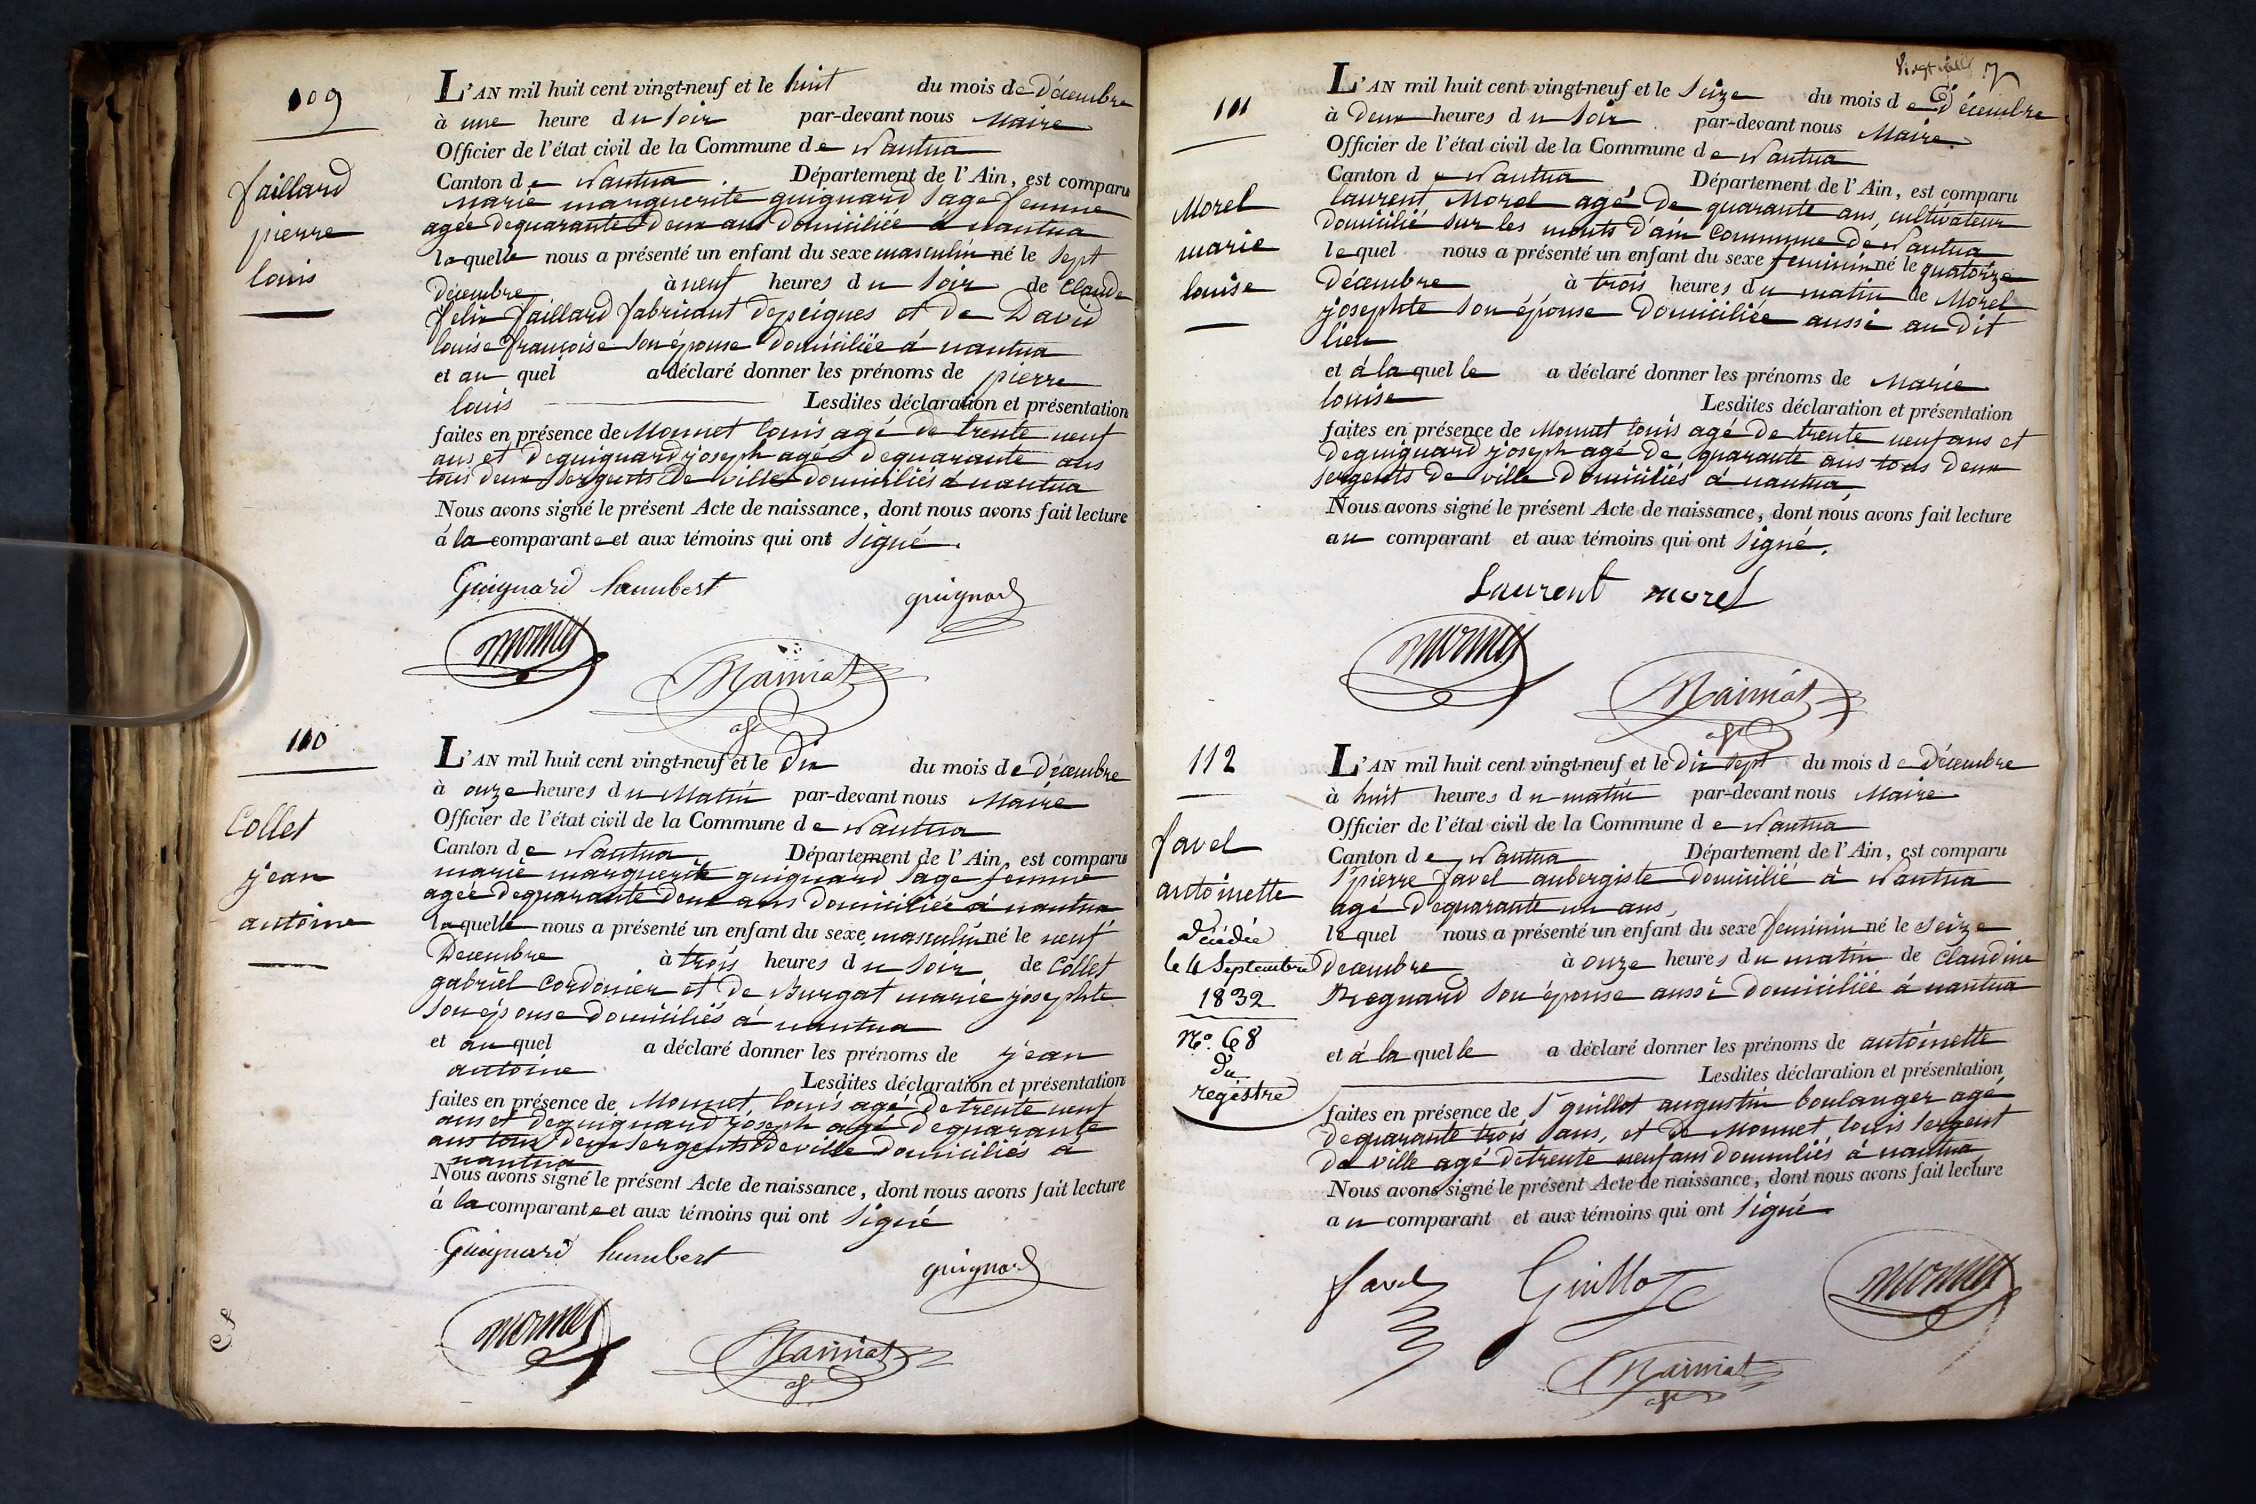 109
faillard
pierre
louis
L'AN mil huit cent vingt-neuf et le huit du mois de Décembre
à une heure du soir par-devant nous Maire
Officier de l'état civil de la Commune de Nantua
Canton de Nantua. Département de l'Ain, est comparu
marie marguerite guignard sage femme
agée de quarante Deux ans Domiciliée à nantua
laquelle nous a présenté un enfant du sexe masculin né le sept
Décembre à neuf heures du soir de Claude
felix faillard fabricant de peignes et de David
louise françoise son épouse Domiciliée à nantua
et au quel a déclaré donner les prénoms de pierre
louis Lesdites déclaration et présentation
faites en présence de Monnet louis agé de trente neuf
ans et de guignard joseph agé de quarante ans
tous deux sergents de ville domiciliés à nantua
Nous avons signé le présent Acte de naissance, dont nous avons fait lecture
à la comparante et aux témoins qui ont signé.
Guignard humbert
guignard
monnet
Mainiat
110
Collet
jean
antoine
L'AN mil huit cent vingt-neuf et le Dix du mois de Décembre
à onze heures du Matin par-devant nous Maire
Officier de l'état civil de la Commune de Nantua
Canton de Nantua Département de l'Ain, est comparu
marie marguerite guignard sage femme
agée de quarante Deux ans Domiciliée à nantua
laquelle nous a présenté un enfant du sexe masculin né le neuf
Decembre à trois heures du soir de Collet
gabriel Cordonier et de Burgat marie josephte
son épouse Domiciliés à nantua
et au quel a déclaré donner les prénoms de jean
antoine Lesdites déclaration et présentation
faites en présence de Monnet louis agé de trente neuf
ans et de guignard joseph agé de quarante
ans tous deux sergents de ville domiciliés à
nantua
Nous avons signé le présent Acte de naissance, dont nous avons fait lecture
à la comparante et aux témoins qui ont signé
Guignard humbert
guignard
monnet
Mainiat
111
Morel
marie
louise
L'AN mil huit cent vingt-neuf et le seize du mois de Décembre
à Deux heures du soir par-devant nous Maire.
Officier de l'état civil de la Commune de Nantua
Canton de Nantua Département de l'Ain, est comparu
laurent Morel agé de quarante ans, cultivateur
domicilié sur les monts d'ain commune de Nantua
lequel nous a présenté un enfant du sexe feminin né le quatorze
décembre à trois heures du matin de Morel
josephte son épouse Domiciliée aussi au dit
lieu
et à la quelle a déclaré donner les prénoms de Marie
louise Lesdites déclaration et présentation
faites en présence de Monnet louis agé de trente neuf ans et
de guignard joseph agé de quarante ans tous deux
sergents de ville domiciliés à nantua
Nous avons signé le présent Acte de naissance, dont nous avons fait lecture
au comparant et aux témoins qui ont signé.
Laurent morel
monnet
Mainiat
112
favel
antoinette
Décédée
le 4 Septembre
1832
No. 68
du
registre
L'AN mil huit cent vingt-neuf et le Dix sept du mois de Décembre
à huit heures du matin par-devant nous Maire
Officier de l'état civil de la Commune de Nantua
Canton de Nantua Département de l'Ain, est comparu
Sr pierre favel aubergiste Domicilié à Nantua
agé de quarante un ans,
lequel nous a présenté un enfant du sexe feminin né le seize
Decembre à onze heures du matin de Claudine
Regnard son épouse aussi Domiciliée à nantua
et à la quelle a déclaré donner les prénoms de antoinette
Lesdites déclaration et présentation
faites en présence de Sr guillot augustin boulanger agé
de quarante trois ans, et de Monnet louis sergent
de ville agé de trente neuf ans domiciliés à nantua
Nous avons signé le présent Acte de naissance, dont nous avons fait lecture
au comparant et aux témoins qui ont signé
favel
Guillot
monnet
Mainiat